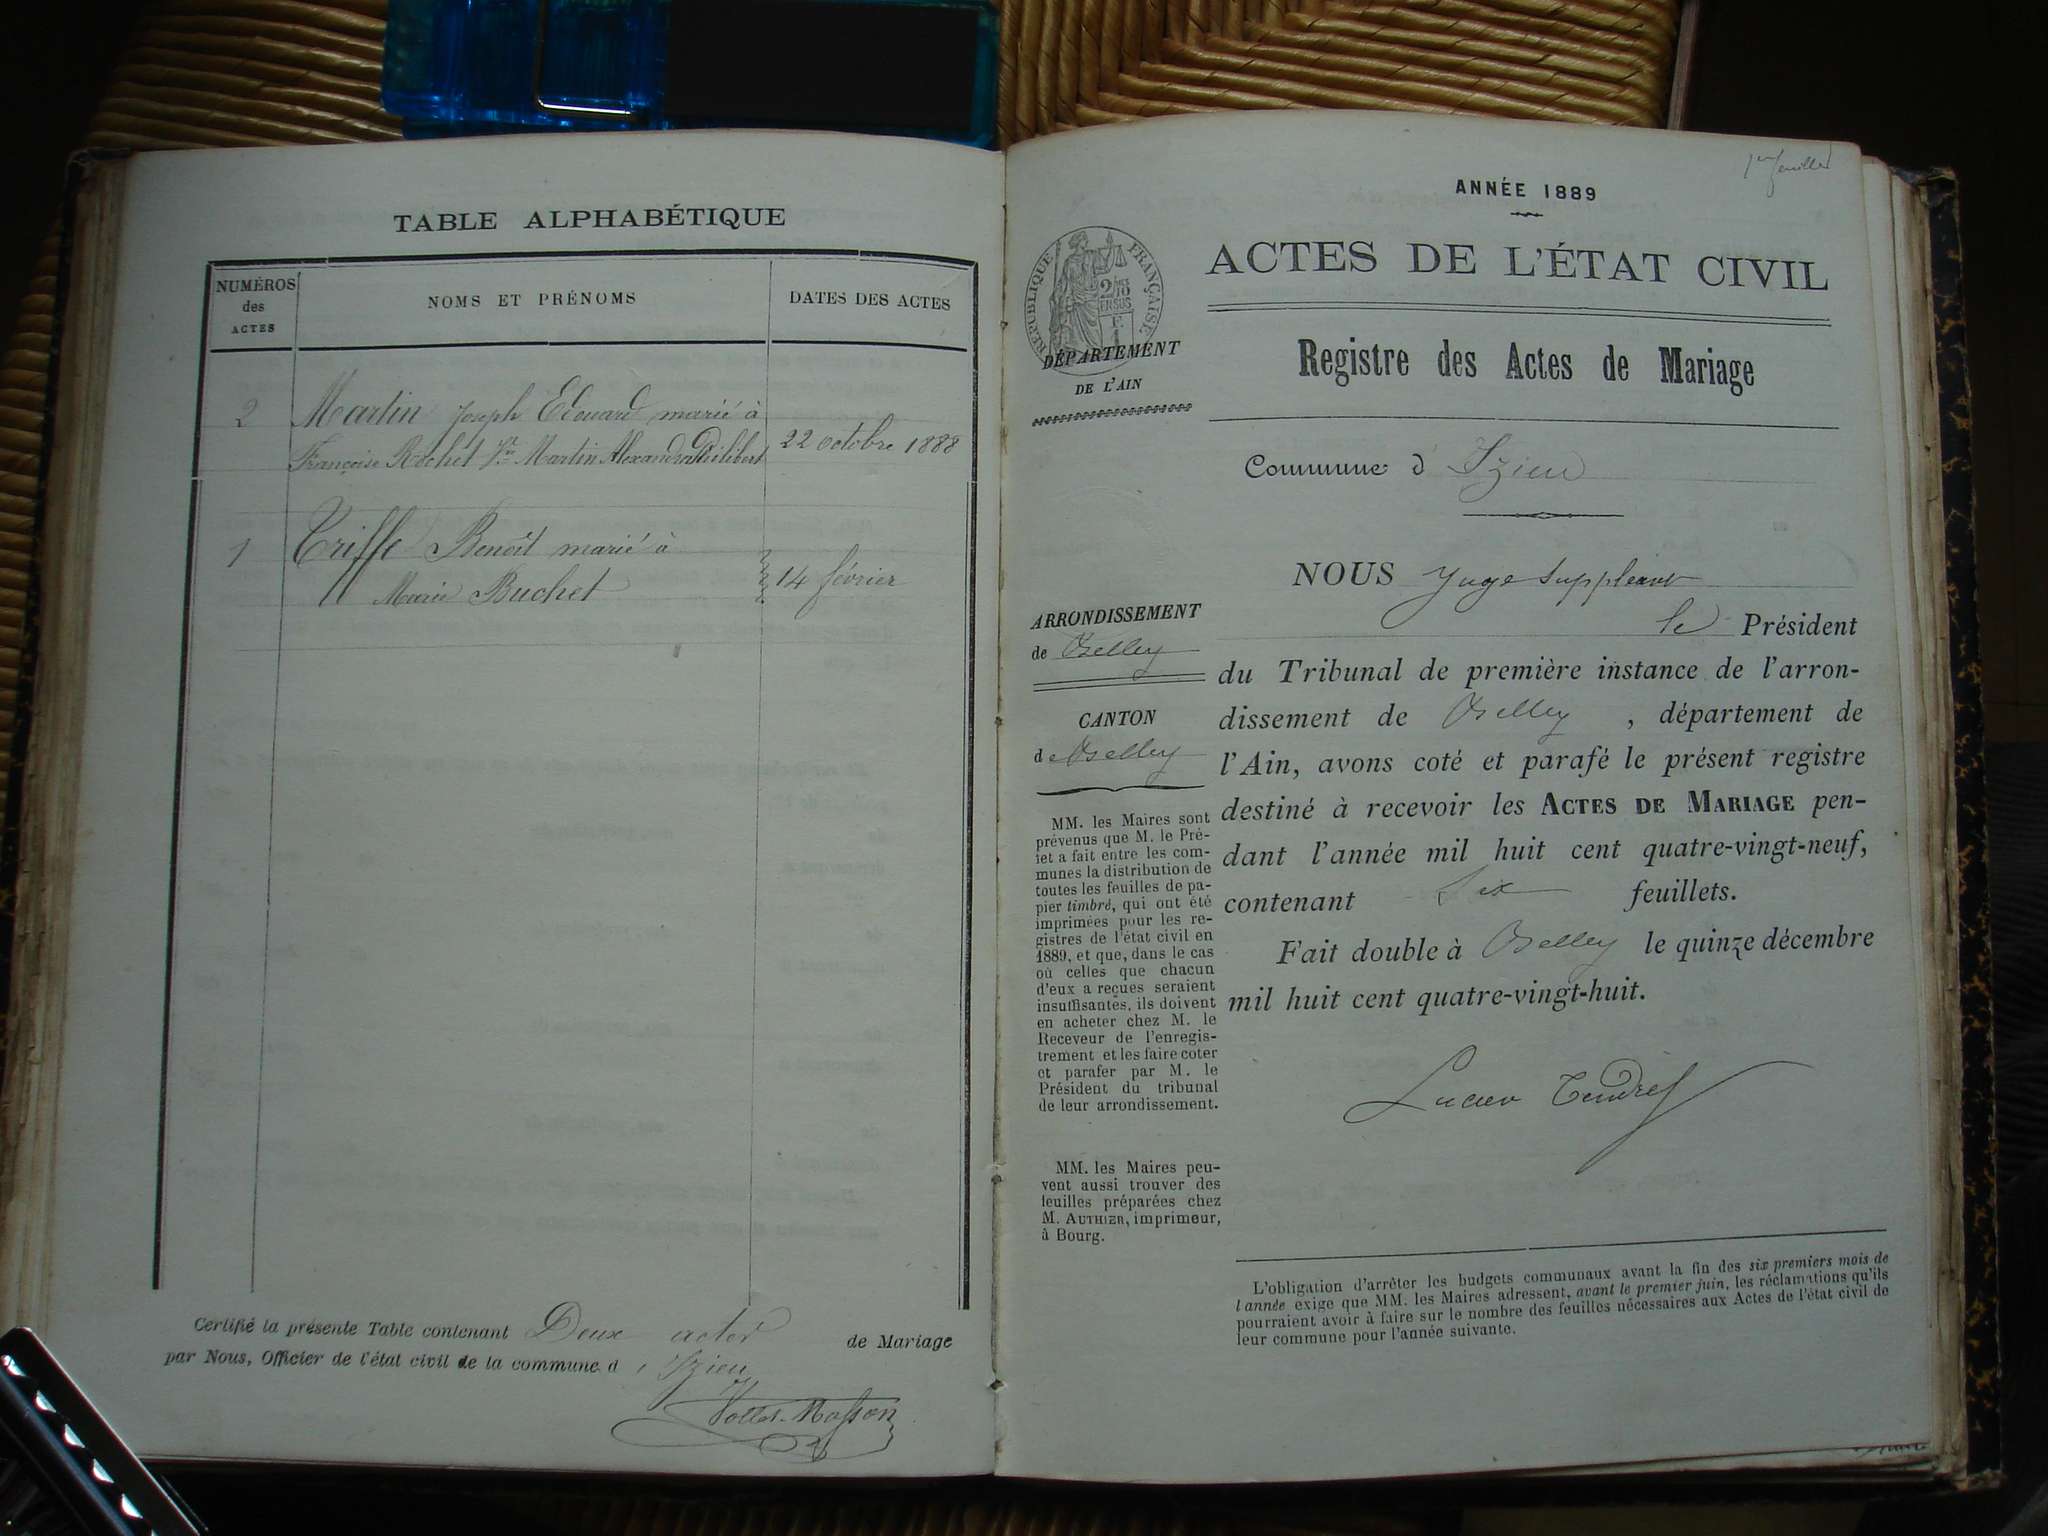 TABLE ALPHABÉTIQUE
NUMÉROS
des
ACTES
NOMS ET PRÉNOMS
DATES DES ACTES
2
Martin Joseph Edouard marié à
Françoise Rochet Martin Alexandre Philibert
22 octobre 1888
1
Triffe Benoît marié à
Marie Buchet
14 février
Certifié la présente Table contenant Deux actes de Mariage
par Nous, Officier de l'état civil de la commune d'Izieu
1er feuillet
ANNÉE 1889
ACTES DE L'ÉTAT CIVIL
RÉPUBLIQUE FRANÇAISE
DÉPARTEMENT
DE L'AIN
Registre des Actes de Mariage
Commune d'Izieu
NOUS Juge Suppléant
le Président
du Tribunal de première instance de l'arron-
dissement de Belley, département de
l'Ain, avons coté et parafé le présent registre
destiné à recevoir les ACTES DE MARIAGE pen-
dant l'année mil huit cent quatre-vingt-neuf,
contenant six feuillets.
Fait double à Belley le quinze décembre
mil huit cent quatre-vingt-huit.
Lucien Tendret
ARRONDISSEMENT
de Belley
CANTON
de Belley
MM. les Maires sont
prévenus que M. le Pré-
fet a fait entre les com-
munes la distribution de
toutes les feuilles de pa-
pier timbré, qui ont été
imprimées pour les re-
gistres de l'état civil en
1889, et que, dans le cas
où celles que chacun
d'eux a reçues seraient
insuffisantes, ils doivent
en acheter chez M. le
Receveur de l'enregis-
trement et les faire coter
et parafer par M. le
Président du tribunal
de leur arrondissement.
MM. les Maires peu-
vent aussi trouver des
feuilles préparées chez
M. AUTHIER, imprimeur,
à Bourg.
L'obligation d'arrêter les budgets communaux avant la fin des six premiers mois de
l'année exige que MM. les Maires adressent, avant le premier juin, les réclamations qu'ils
pourraient avoir à faire sur le nombre des feuilles nécessaires aux Actes de l'état civil de
leur commune pour l'année suivante.